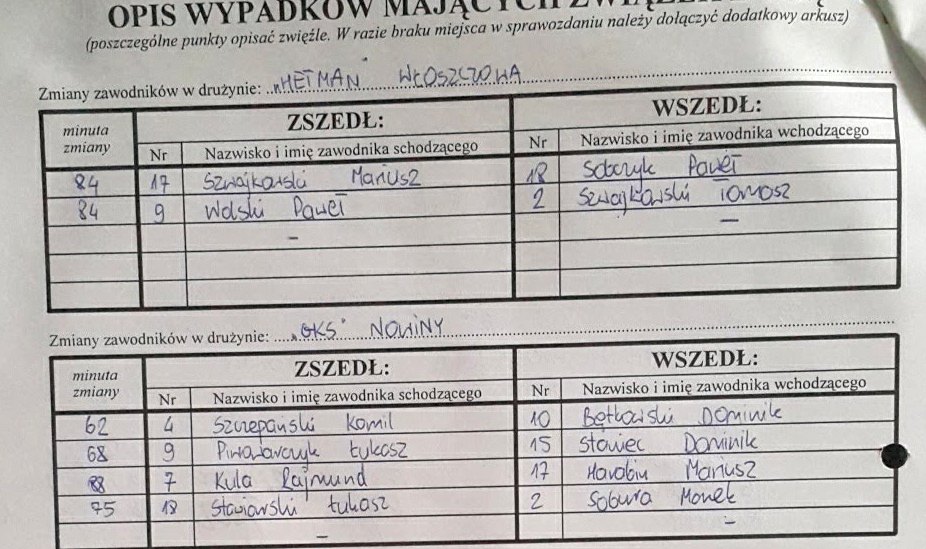 OPIS WYPADKÓW MAJĄCYCH
(poszczególne punkty opisać zwięźle. W razie braku miejsca w sprawozdaniu należy dołączyć dodatkowy arkusz)
Zmiany zawodników w drużynie: „HETMAN" WŁOSZCZOWA
minuta zmiany ZSZEDŁ: WSZEDŁ:
Nr Nazwisko i imię zawodnika schodzącego Nr Nazwisko i imię zawodnika wchodzącego
84 17 Szwajkowski Mariusz 18 Sobczyk Paweł
84 9 Wolski Paweł 2 Szwajkowski Tomasz
– –
Zmiany zawodników w drużynie: „GKS" NOWINY
minuta zmiany ZSZEDŁ: WSZEDŁ:
Nr Nazwisko i imię zawodnika schodzącego Nr Nazwisko i imię zawodnika wchodzącego
62 4 Szczepański Kamil 10 Bętkowski Dominik
68 9 Piwowarczyk Łukasz 15 Stawiec Dominik
88 7 Kula Rajmund 17 Mariusz
75 18 Łukasz 2 Sobura
– –